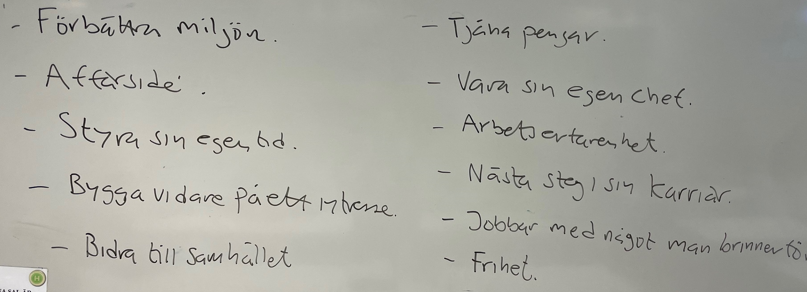 - Förbättra miljön.
- Affärsidé.
- Styra sin egen tid.
- Bygga vidare på ett intresse.
- Bidra till samhället
- Tjäna pengar.
- Vara sin egen chef.
- Arbetserfarenhet.
- Nästa steg i sin karriär.
- Jobbar med något man brinner fö.
- Frihet.